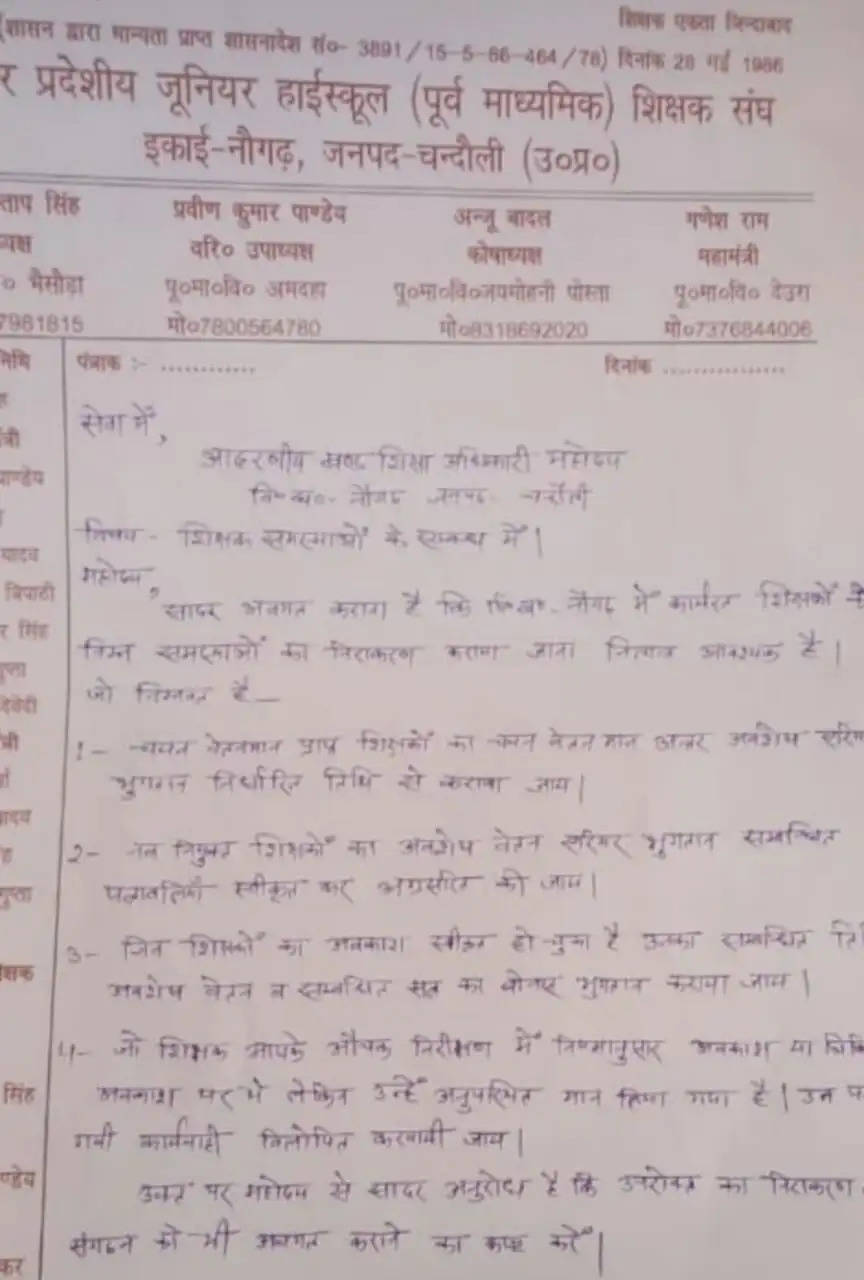 शिक्षक एकता जिन्दाबाद
(शासन द्वारा मान्यता प्राप्त शासनादेश सं०- 3891/15-5-86-464/78) दिनांक 28 मई 1986
र प्रदेशीय जूनियर हाईस्कूल (पूर्व माध्यमिक) शिक्षक संघ
इकाई-नौगढ़, जनपद-चन्दौली (उ०प्र०)
ताप सिंह प्रवीण कुमार पाण्डेय अन्जू बादल गणेश राम
यक्ष वरि० उपाध्यक्ष कोषाध्यक्ष महामंत्री
० भैसौडा पू०मा०वि० अमदहा पू०मा०वि०जयमोहनी पोस्ता पू०मा०वि० देउरा
7981815 मो०7800564780 मो०8318692020 मो०7376844006
पंत्राक :- ............ दिनांक ................
सेवा में,
आदरणीय खण्ड शिक्षा अधिकारी महोदय
वि०ख०- नौगढ़ जनपद- चन्दौली
विषय - शिक्षक समस्याओं के सम्बन्ध में।
महोदय,
सादर अवगत कराना है कि वि०ख०- नौगढ़ में कार्यरत शिक्षकों की
निम्न समस्याओं का निराकरण कराया जाना नितान्त आवश्यक है।
जो निम्नवत है —
1- चयन वेतनमान प्राप्त शिक्षकों का चयन वेतन मान अन्तर अवशेष एरिय
भुगतान निर्धारित तिथि से कराया जाय।
2- नव नियुक्त शिक्षकों का अवशेष वेतन एरियर भुगतान सम्बन्धित
पत्रावलियाँ स्वीकृत कर अग्रसरित की जाय।
3- जिन शिक्षकों का अवकाश स्वीकृत हो चुका है उनका सम्बन्धित ति
अवशेष वेतन व सम्बन्धित सत्र का बोनस भुगतान कराया जाय।
4- जो शिक्षक आपके औचक निरीक्षण में नियमानुसार अवकाश या चिकि
अवकाश पर थे लेकिन उन्हें अनुपस्थित मान लिया गया है। उन प
गयी कार्यवाही विलोपित करवायी जाय।
उक्त पर महोदय से सादर अनुरोध है कि उपरोक्त का निराकरण
संगठन को भी अवगत कराने का कष्ट करें।